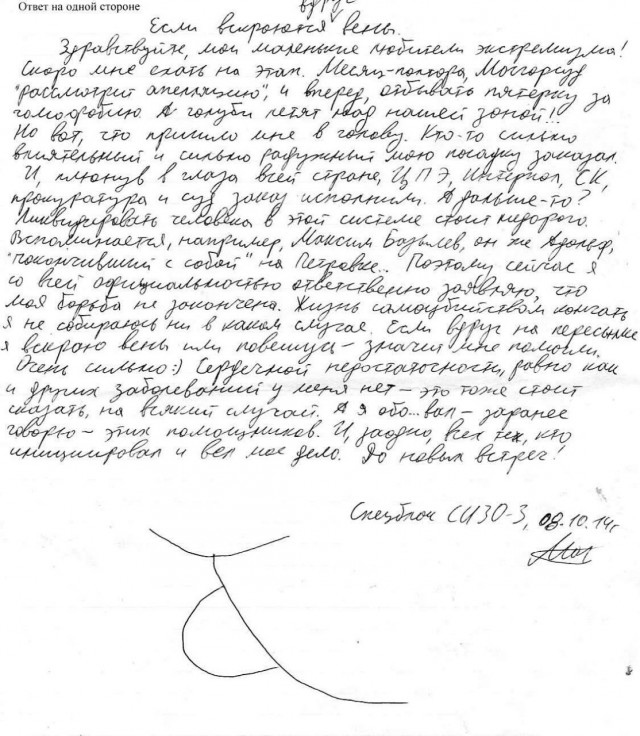 Ответ на одной стороне
вдруг
Если вскроются вены.
Здравствуйте, мои маленькие любители экстремизма!
Скоро мне ехать на этап. Месяц-полтора, Мосгорсуд
"рассмотрит апелляцию", и вперед, отбывать пятерку за
гомофобию. А голуби летят над нашей зоной!..
Но вот, что пришло мне в голову. Кто-то сильно
влиятельный и сильно радужный мою посадку заказал.
И, плюнув в глаза всей стране, ЦПЭ, Интерпол, СК,
прокуратура и суд заказ исполнили. А дальше-то?
Ликвидировать человека в этой системе стоит недорого.
Вспоминается, например, Максим Базылев, он же Адольф,
"покончивший с собой" на Петровке.. Поэтому сейчас я
со всей официальностью ответственно заявляю, что
моя борьба не закончена. Жизнь самоубийством кончать
я не собираюсь ни в каком случае. Если вдруг на пересылке
я вскрою вены или повешусь - значит мне помогли.
Очень сильно:) Сердечной недостаточности, равно как
и других заболеваний у меня нет - это тоже стоит
сказать, на всякий случай. А я *бо...вал - заранее
говорю - этих помощников. И, заодно, всех тех, кто
инициировал и вел мое дело. До новых встреч!
Спецблок СИЗО-3, 08.10.14г